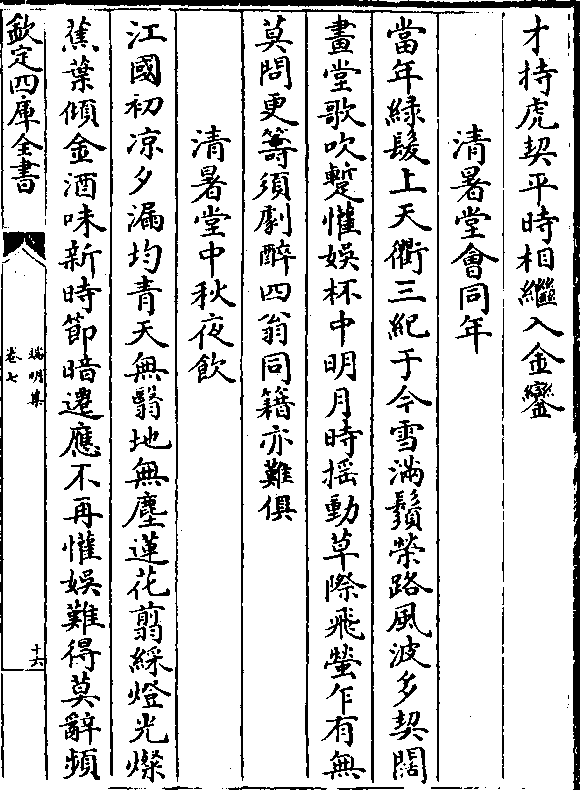 才持虎契平時相繼入金鑾
清暑堂會同年
當年緑髮上天衢三紀于今雪滿鬚榮路風波多契闊
畫堂歌吹蹔懽娯杯中明月時揺動草際飛螢乍有無
莫問更籌須劇醉四翁同籍亦難俱
清暑堂中秋夜飲
江國初凉夕漏均青天無翳地無塵蓮花翦綵燈光燦
蕉葉傾金酒味新時節暗遷應不再懽娯難得莫辭頻
欽定四庫全書
端明集
卷七
十六